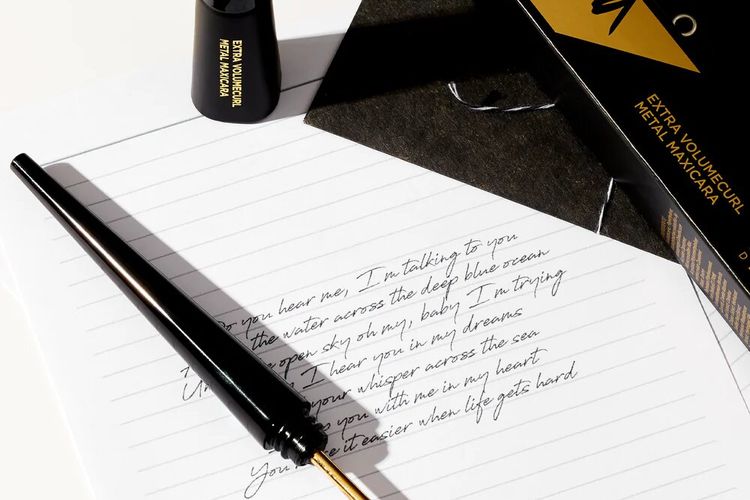 EXTRA VOLUMECURL
METAL MAXICARA
EXTRA VOLUMECURL
METAL MAXICARA
you hear me, I'm talking to you
the water across the deep blue ocean
open sky oh my, baby I'm trying
I hear you in my dreams
your whisper across the sea
you with me in my heart
it easier when life gets hard